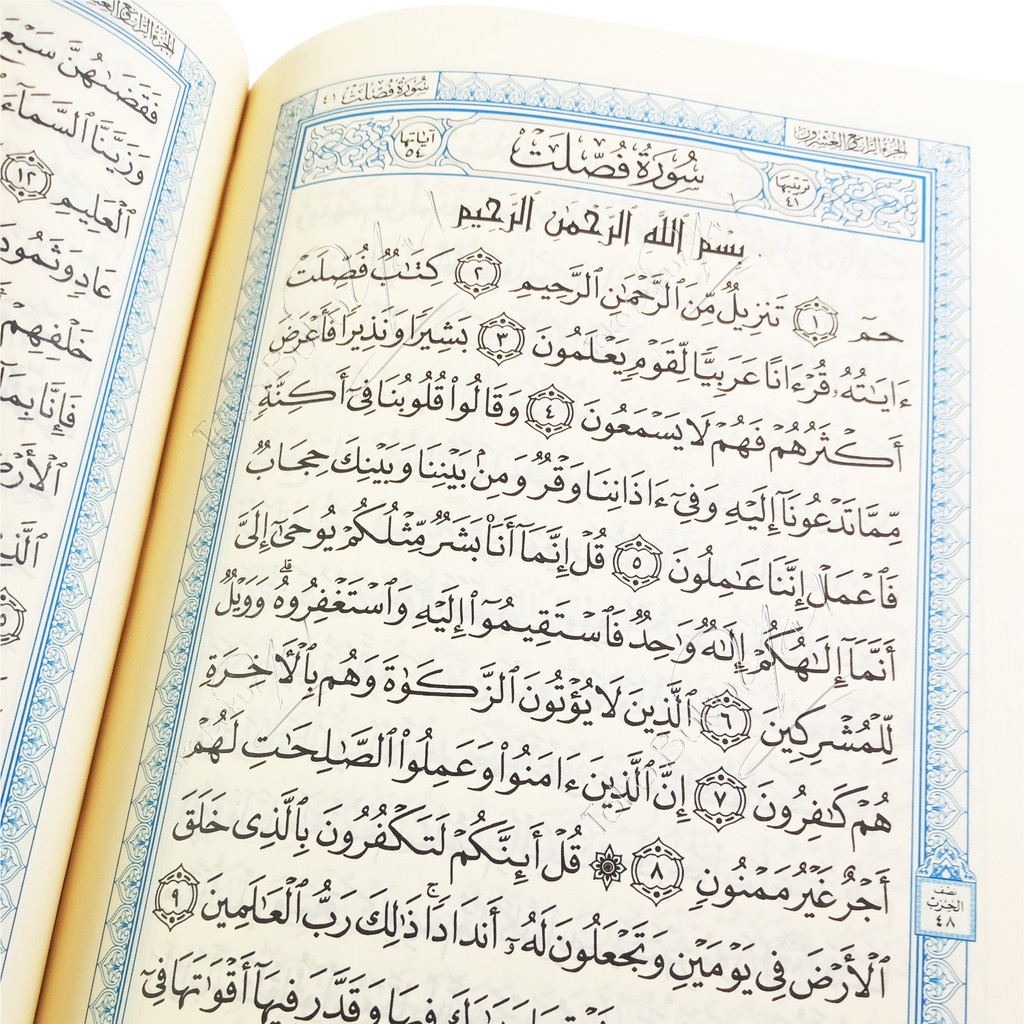 الجزء الرابع والعشرون
سورة فصلت ٤١
ترتيبها ٤١
سُورَةُ فُصِّلَتْ
آياتها ٥٤
بِسْمِ ٱللَّهِ ٱلرَّحْمَٰنِ ٱلرَّحِيمِ
حمٓ ١ تَنزِيلٌ مِّنَ ٱلرَّحْمَٰنِ ٱلرَّحِيمِ ٢ كِتَٰبٌ فُصِّلَتْ
ءَايَٰتُهُۥ قُرْءَانًا عَرَبِيًّا لِّقَوْمٍ يَعْلَمُونَ ٣ بَشِيرًا وَنَذِيرًا فَأَعْرَضَ
أَكْثَرُهُمْ فَهُمْ لَا يَسْمَعُونَ ٤ وَقَالُوا۟ قُلُوبُنَا فِىٓ أَكِنَّةٍ
مِّمَّا تَدْعُونَآ إِلَيْهِ وَفِىٓ ءَاذَانِنَا وَقْرٌ وَمِنۢ بَيْنِنَا وَبَيْنِكَ حِجَابٌ
فَٱعْمَلْ إِنَّنَا عَٰمِلُونَ ٥ قُلْ إِنَّمَآ أَنَا۠ بَشَرٌ مِّثْلُكُمْ يُوحَىٰٓ إِلَىَّ
أَنَّمَآ إِلَٰهُكُمْ إِلَٰهٌ وَٰحِدٌ فَٱسْتَقِيمُوٓا۟ إِلَيْهِ وَٱسْتَغْفِرُوهُ ۗ وَوَيْلٌ
لِّلْمُشْرِكِينَ ٦ ٱلَّذِينَ لَا يُؤْتُونَ ٱلزَّكَوٰةَ وَهُم بِٱلْأَخِرَةِ
هُمْ كَٰفِرُونَ ٧ إِنَّ ٱلَّذِينَ ءَامَنُوا۟ وَعَمِلُوا۟ ٱلصَّٰلِحَٰتِ لَهُمْ
أَجْرٌ غَيْرُ مَمْنُونٍ ٨ ۞ قُلْ أَئِنَّكُمْ لَتَكْفُرُونَ بِٱلَّذِى خَلَقَ
ٱلْأَرْضَ فِى يَوْمَيْنِ وَتَجْعَلُونَ لَهُۥٓ أَندَادًا ۚ ذَٰلِكَ رَبُّ ٱلْعَٰلَمِينَ ٩
وَقَدَّرَ فِيهَآ أَقْوَٰتَهَا فِىٓ
نصف
الحزب
٤٨
الجزء الرابع
فَقَضَىٰهُنَّ سَبْعَ
وَزَيَّنَّا ٱلسَّمَآءَ
ٱلْعَلِيمِ ١٢
عَادٍ وَثَمُودَ
خَلْفِهِمْ
فَإِنَّا بِمَآ